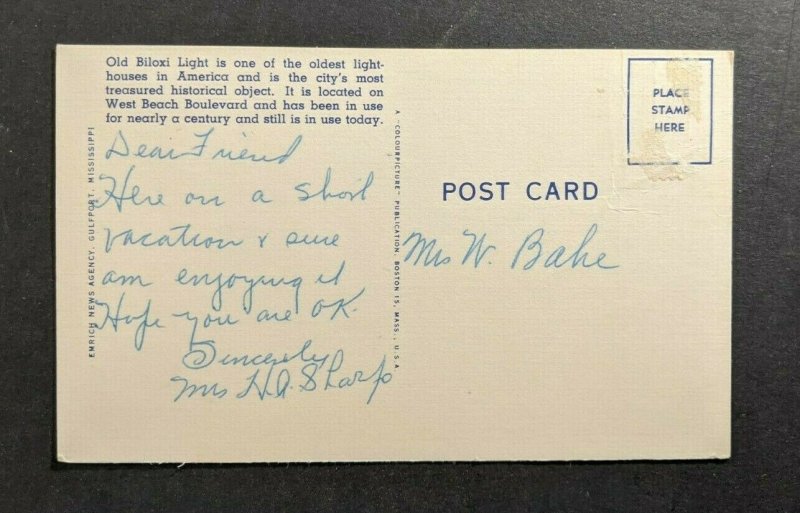 Old Biloxi Light is one of the oldest light-
houses in America and is the city's most
treasured historical object. It is located on
West Beach Boulevard and has been in use
for nearly a century and still is in use today.
Dear Friend
Here on a short
vacation & sure
am enjoying it
Hope you are OK.
Sincerely
Mrs H.A. Sharp
EMRICH NEWS AGENCY, GULFPORT, MISSISSIPPI
A "COLOURPICTURE" PUBLICATION, BOSTON 15, MASS., U.S.A.
PLACE
STAMP
HERE
POST CARD
Mrs W. Bake